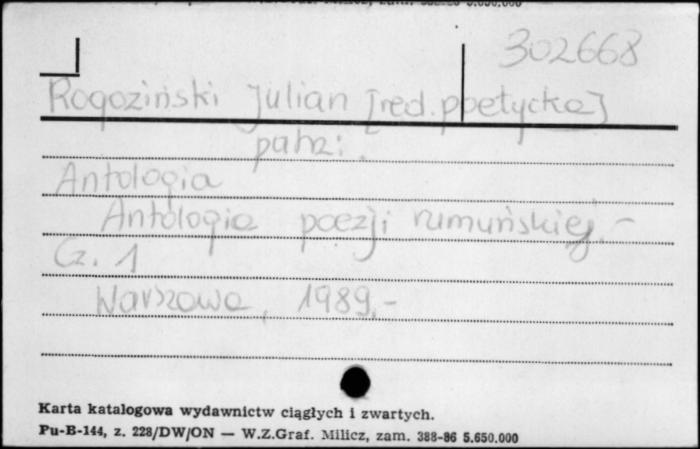 302668
Rogoziński Julian [red. poetycka]
patrz:
Antologia
Antologia poezji rumuńskiej.-
Cz. 1
Warszawa, 1989.-
Karta katalogowa wydawnictw ciągłych i zwartych.
Pu-B-144, z. 228/DW/ON — W.Z.Graf. Milicz, zam. 388-86 5.650.000